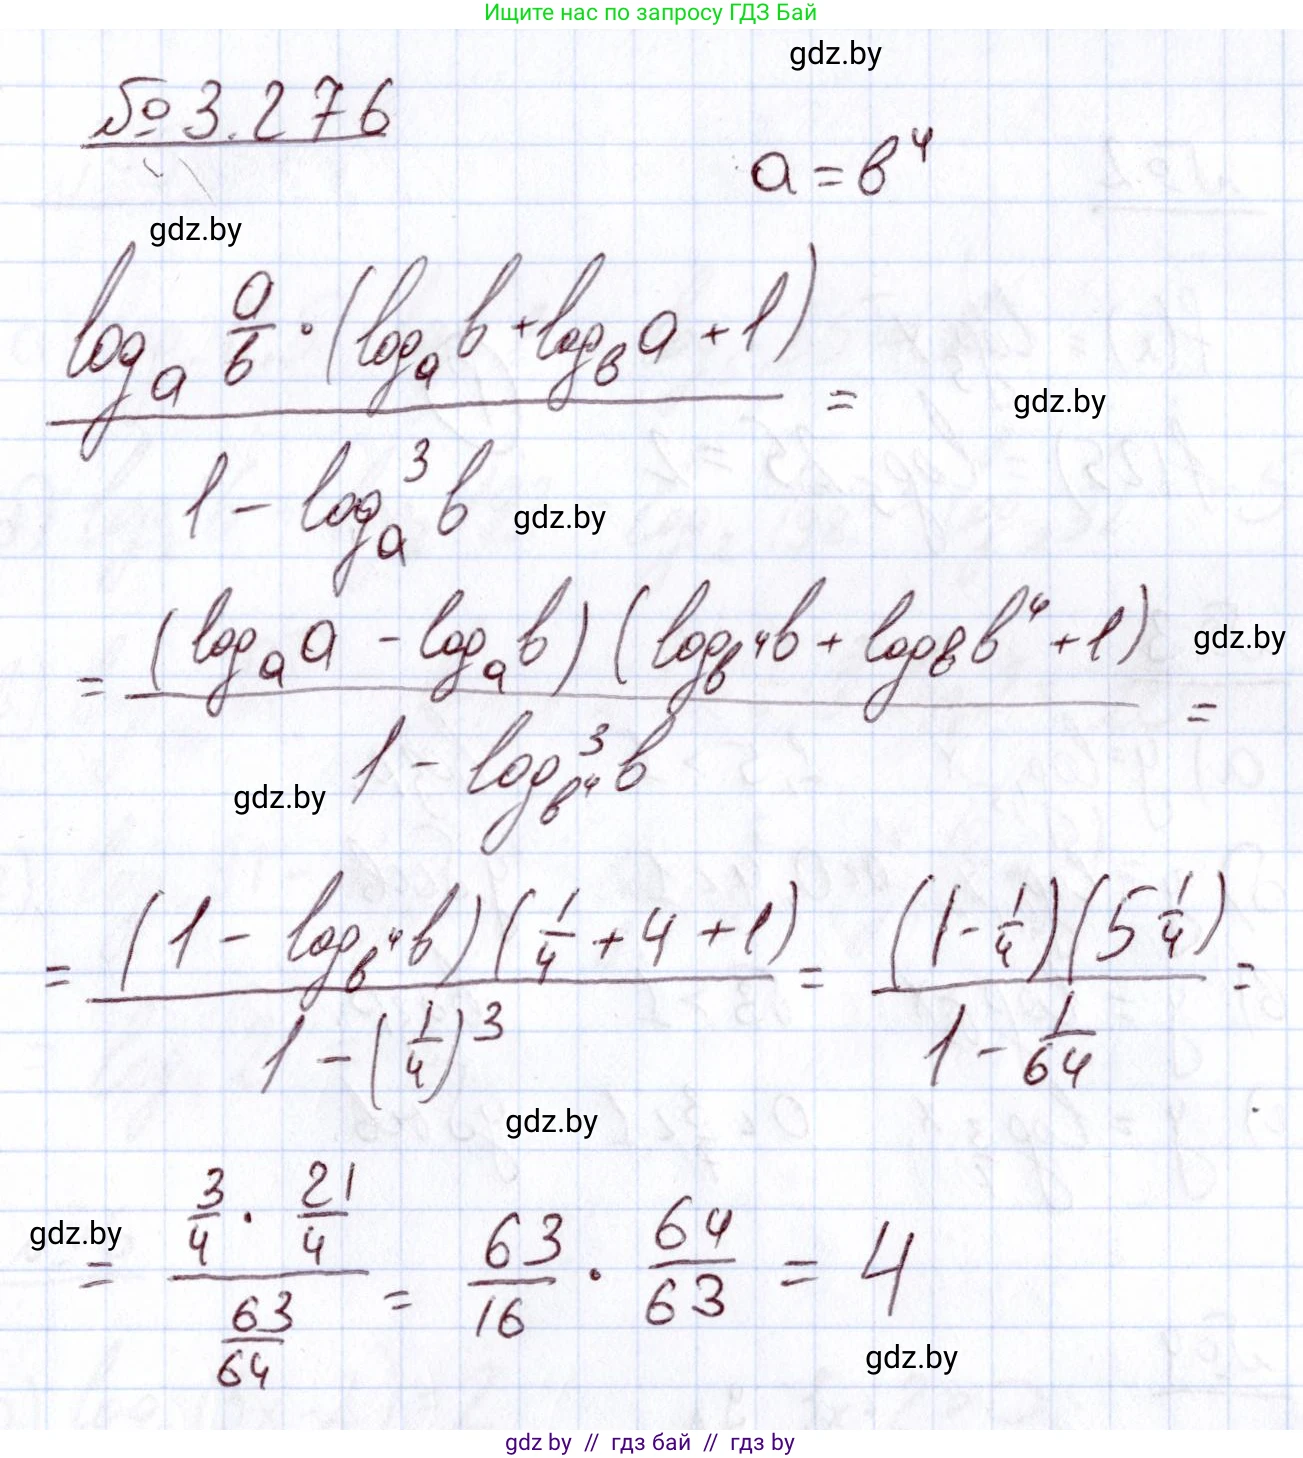 Ищите нас по запросу ГДЗ Бай
gdz.by
№ 3.276
a = b⁴
gdz.by
log_a a/b · (log_a b + log_b a + 1) / (1 - log_a³ b) =
gdz.by
gdz.by
= (log_a a - log_a b)(log_b⁴ b + log_b b⁴ + 1) / (1 - log³_b⁴ b) =
gdz.by
gdz.by
= (1 - log_b⁴ b)(1/4 + 4 + 1) / (1 - (1/4)³) = (1 - 1/4)(5 1/4) / (1 - 1/64) =
gdz.by
gdz.by
= (3/4 · 21/4) / (63/64) = 63/16 · 64/63 = 4
gdz.by
gdz by // гдз бай // гдз by